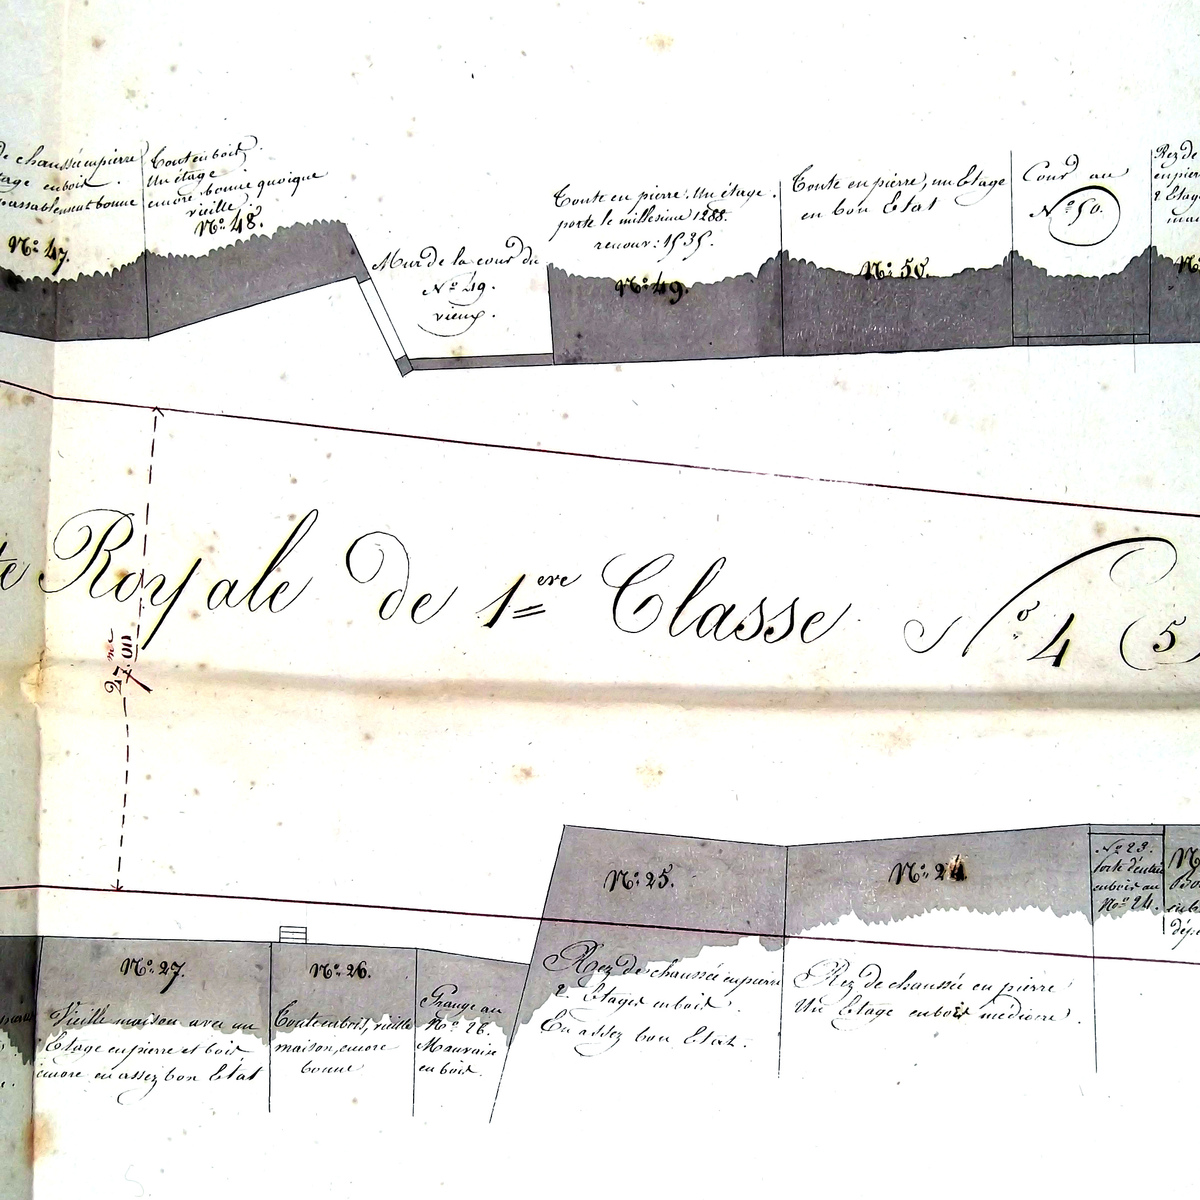 de chaussée en pierre
étage en bois.
passablement bonne
N.º 47.
Tout en bois,
Un étage
encore bonne quoique
vieille.
N.º 48.
Mur de la cour du
N.º 49.
vieux.
Toute en pierre. Un étage.
porte le millesime 1288.
renouv: 1535.
N.º 49.
Toute en pierre, un Etage
en bon Etat
N.º 50.
Cour au
N.º 50.
Rez de
en pierre
2 Etages
N.º
te Royale de 1ere Classe N.º 4 (5
27.00
N.º 25.
Rez de chaussée en pierre
2. Etages en bois.
En assez bon Etat.
N.º 24
Rez de chaussée en pierre
Un Etage en bois médiocre.
N.º 23.
Porte d'entrée
en bois au
N.º 24.
N.º 27.
Vieille maison avec un
Etage en pierre et bois
encore en assez bon Etat
N.º 26.
Tout en bois, vieille
maison, encore
bonne
Grange au
N.º 26.
Mauvaise
en bois.